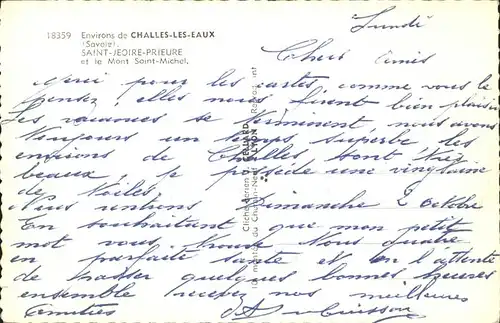 18359 Environs de CHALLES-LES-EAUX
(Savoie).
SAINT-JEOIRE-PRIEURE
et le Mont Saint-Michel.
Lundi
Chers Amis
Merci pour les cartes comme vous le
pensez, elles nous firent bien plaisir
Les vacances se terminent nous avons
toujours un temps superbe les
environs de Challes sont très
beaux, je possède une vingtaine
de toiles.
Nous rentrons Dimanche 2 octobre
En souhaitant que mon petit
mot vous trouve tous quatre
en parfaite santé et en l'attente
de passer quelques bonnes heures
ensemble recevez nos meilleures
amitiés
LYON